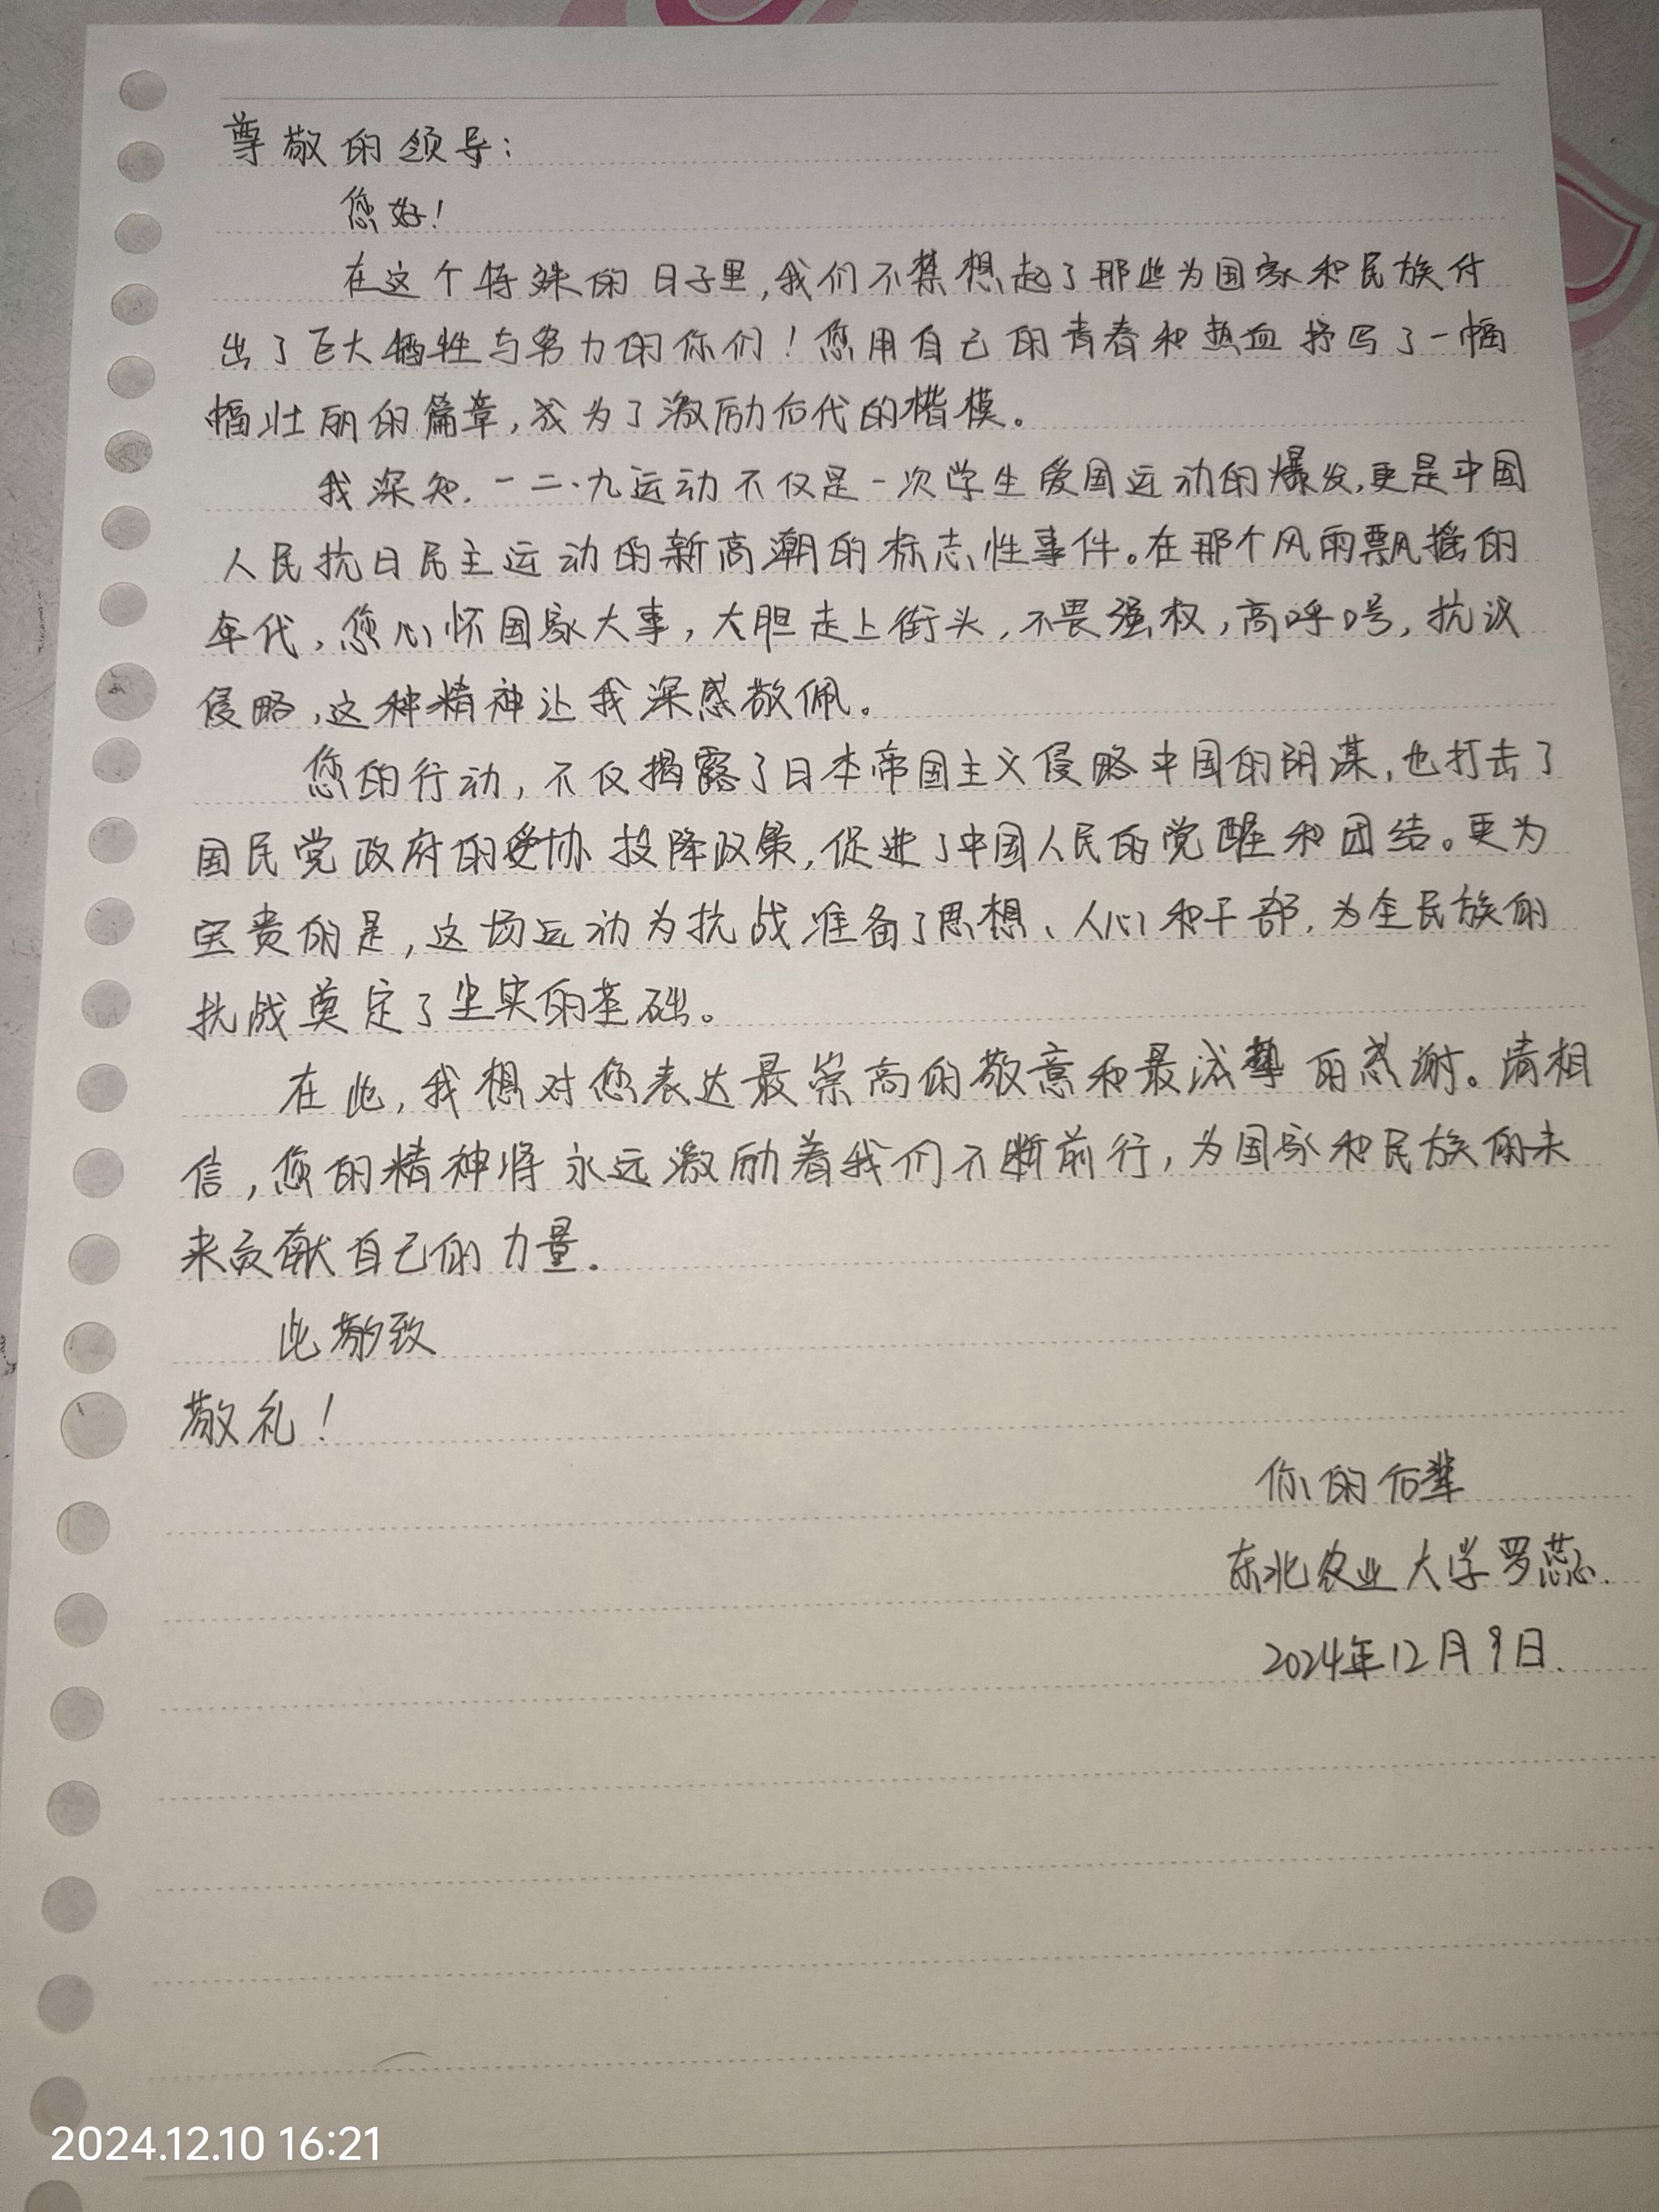 尊敬的领导：
您好！
在这个特殊的日子里，我们不禁想起了那些为国家和民族付
出了巨大牺牲与努力的你们！您用自己的青春和热血抒写了一幅
幅壮丽的篇章，成为了激励后代的楷模。
我深知.一二·九运动不仅是一次学生爱国运动的爆发，更是中国
人民抗日民主运动的新高潮的标志性事件。在那个风雨飘摇的
年代，您心怀国家大事，大胆走上街头，不畏强权，高呼口号，抗议
侵略，这种精神让我深感敬佩。
您的行动，不仅揭露了日本帝国主义侵略中国的阴谋，也打击了
国民党政府的妥协投降政策，促进了中国人民的觉醒和团结。更为
宝贵的是，这场运动为抗战准备了思想、人心和干部，为全民族的
抗战奠定了坚实的基础。
在此，我想对您表达最崇高的敬意和最诚挚的感谢。请相
信，您的精神将永远激励着我们不断前行，为国家和民族的未
来贡献自己的力量.
此致
敬礼！
你的后辈
东北农业大学罗蕊.
2024年12月9日.
2024.12.10 16:21